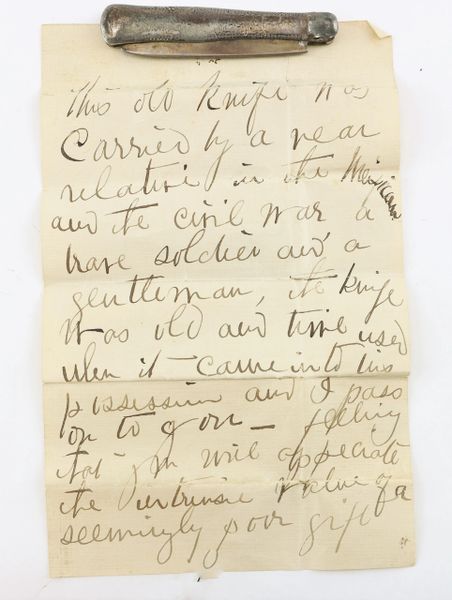 This old knife was
carried by a near
relative in the Mexican
and the civil war a
brave soldier and a
gentleman, the knife
was old and time used
when it came into his
possession and I pass
on to you — feeling
that you will appreciate
the intrinsic value of a
seemingly poor gift